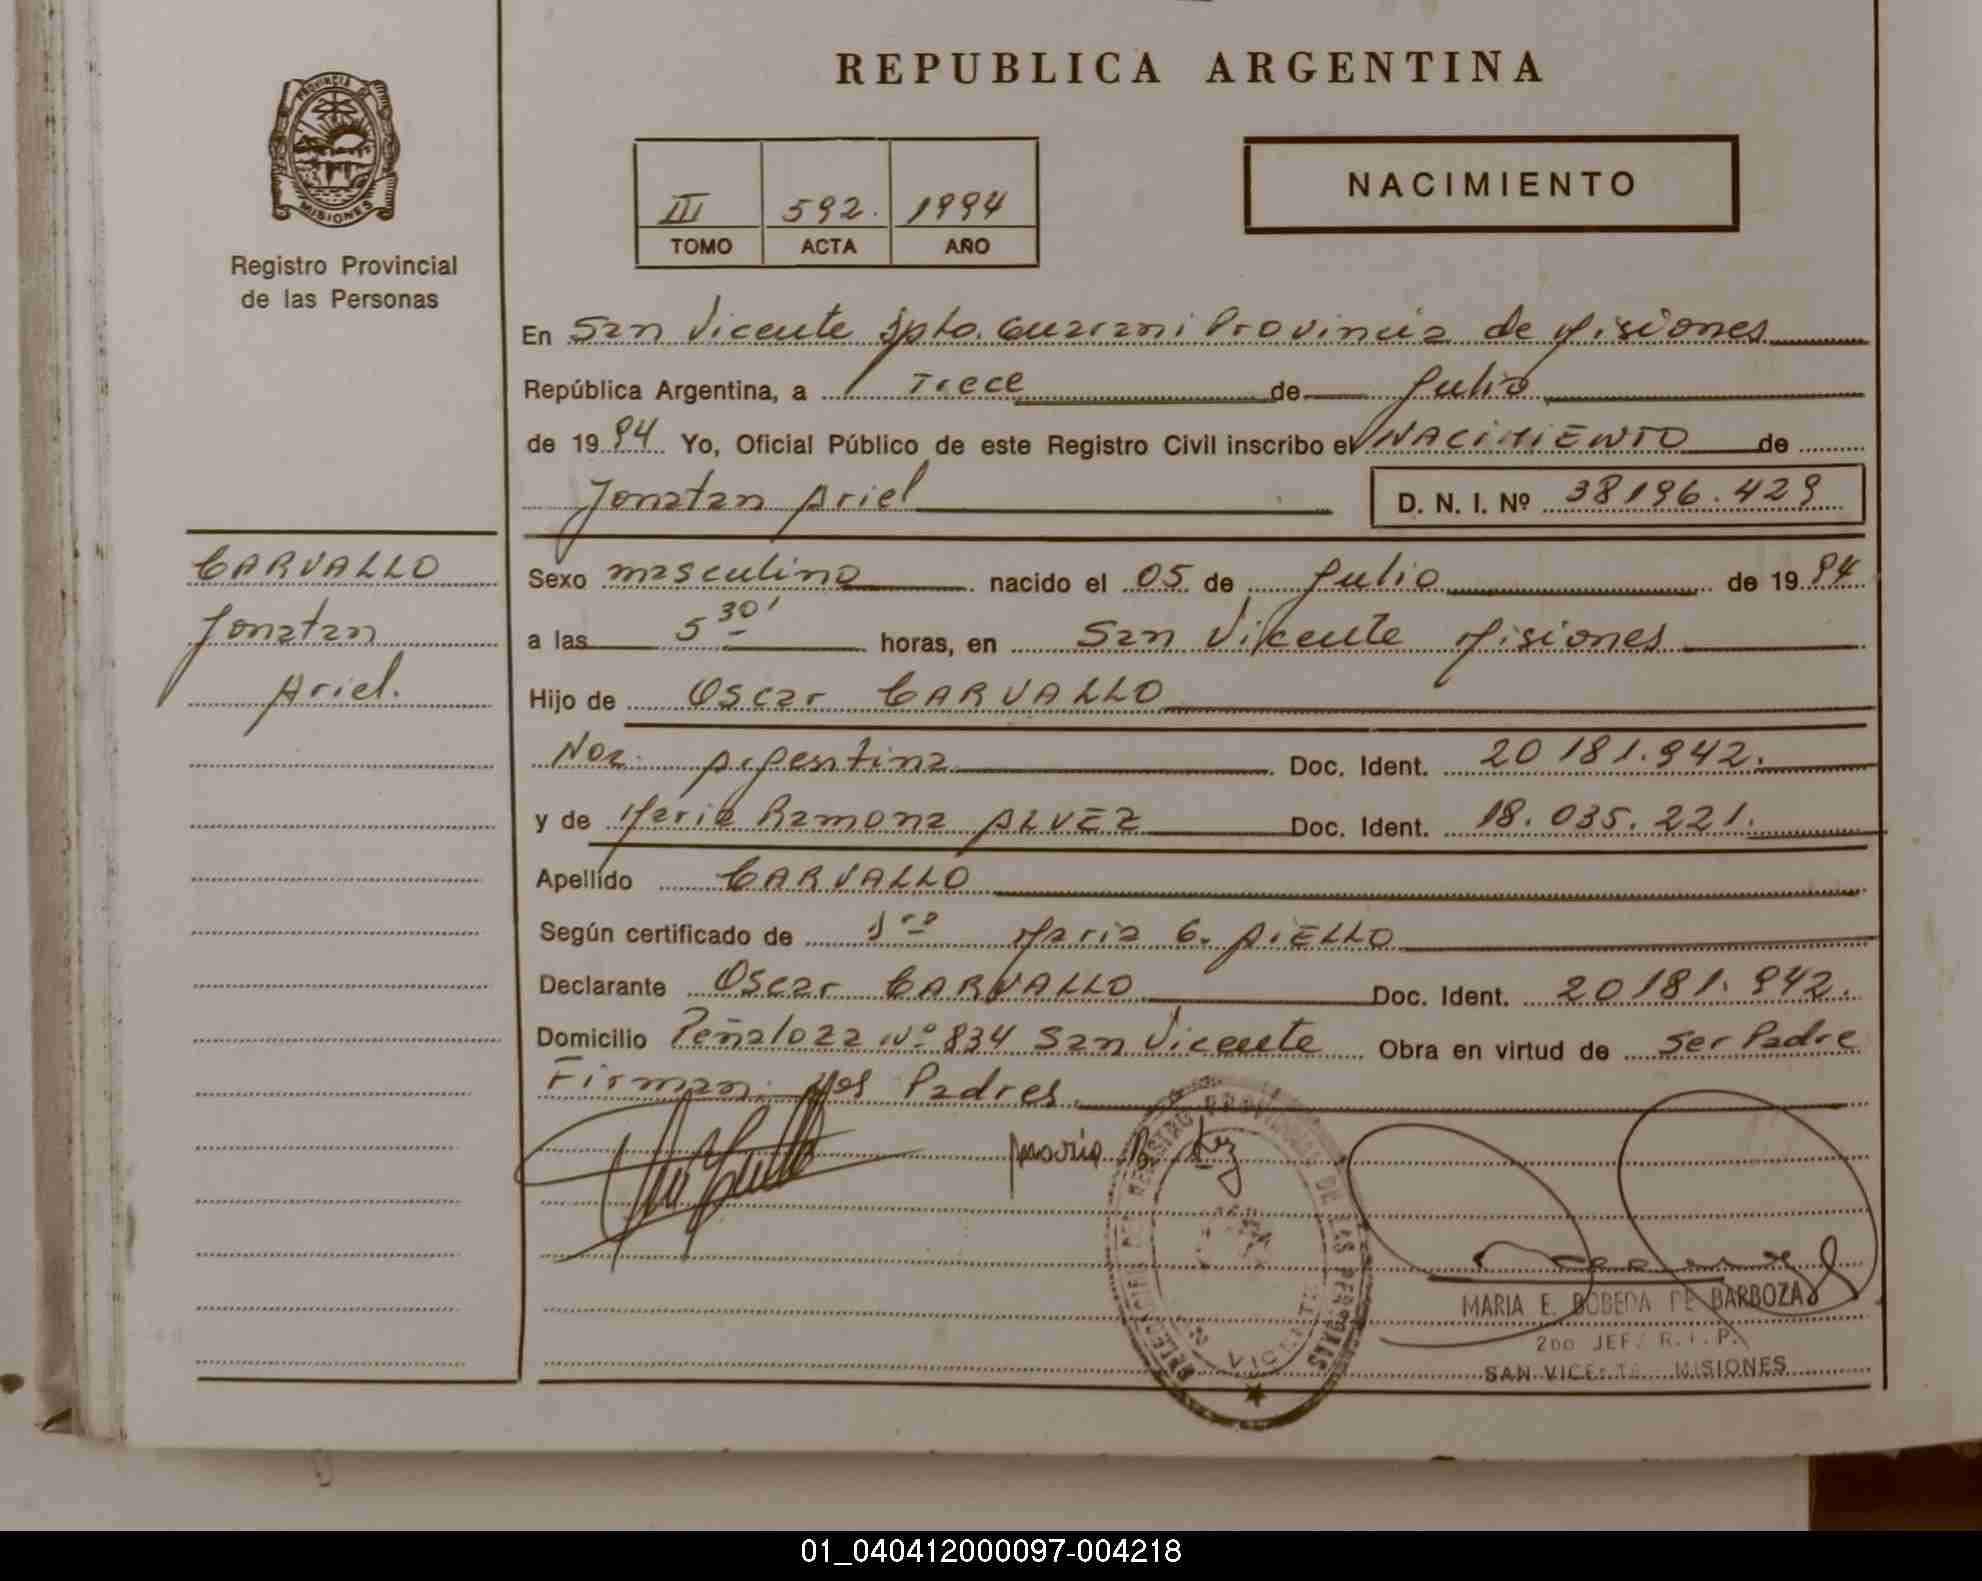 REPUBLICA ARGENTINA
PROVINCIA DE
MISIONES
Registro Provincial
de las Personas
III 592. 1994
TOMO ACTA AÑO
NACIMIENTO
En San Vicente Dpto. Guarani Provincia de Misiones
República Argentina, a Trece de Julio
de 1994 Yo, Oficial Público de este Registro Civil inscribo el NACIMIENTO de
Jonatan Ariel D. N. I. Nº 38196.429
CARVALLO
Jonatan
Ariel.
Sexo masculino nacido el 05 de Julio de 1994
a las 5 30' horas, en San Vicente Misiones
Hijo de Oscar CARVALLO
Nac. Argentina Doc. Ident. 20181.942.
y de Maria Ramona ALVEZ Doc. Ident. 18.035.221.
Apellido CARVALLO
Según certificado de Maria G. AIELLO
Declarante Oscar CARVALLO Doc. Ident. 20181.942.
Domicilio Peñaloza Nº 834 San Vicente Obra en virtud de ser Padre
Firman: los Padres
Maria R.
REGISTRO PROVINCIAL DE LAS PERSONAS
DELEGACION
VICENTE
MARIA E. BOBEDA DE BARBOZA
2DO JEF. R. . P.
SAN VICENTE MISIONES
01_040412000097-004218